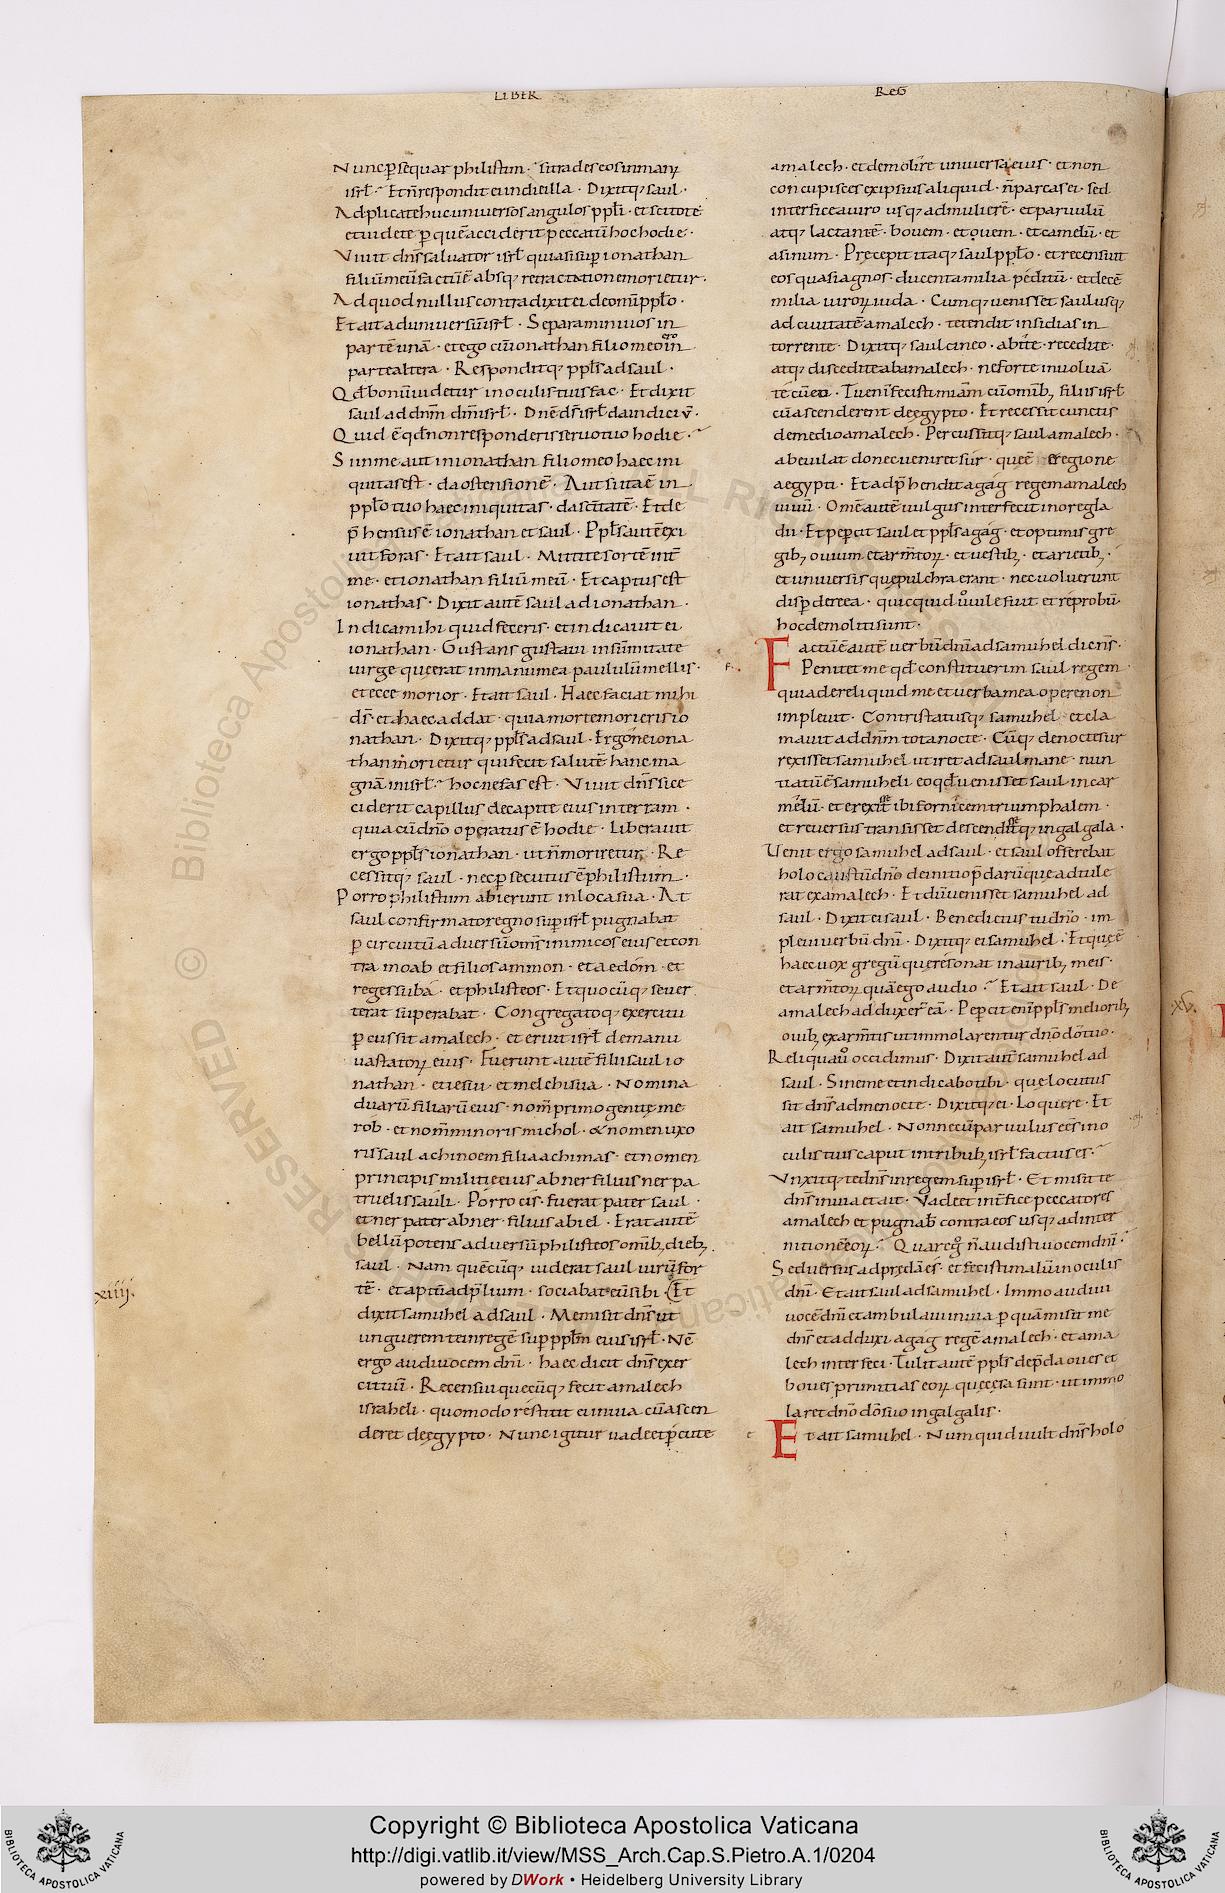 LIBER
REG
Nunc p̄sequar philistim · si trades eos in manu
isrł · Et n̄ respondit eum die illa · Dixitq; saul ·
Adplicate huc universos angulos ppłi · et scitote
et uidete p quē acciderit peccatū hoc hodie ·
Vivit dn̄s saluator isrł quia si sup ionathan
filiū meū factū ē absq; retractatione morietur ·
Ad quod nullus contradixit ei de om̄i ppło ·
Et ait ad universū isrł · Separamini uos in
partē unā · et ego cū ionathan filio meo ero in
parte altera · Responditq; ppłs ad saul ·
Qd bonū uidetur in oculis tuis fac · Et dixit
saul ad dn̄m dm̄ isrł · Dn̄e ds̄ isrł da indiciū ·
Quid ē qd non responderis seruo tuo hodie ·
Si in me aut in ionathan filio meo haec ini
quitas est · da ostensionē · Aut si ita ē in
ppło tuo haec iniquitas · da sc̄itatē · Et de
p̄hensus ē ionathan et saul · Ppłs autē exi
uit foras · Et ait saul · Mittite sortē int̄
me · et ionathan filiū meū · Et captus est
ionathas · Dixit autē saul ad ionathan ·
Indica mihi quid feceris · et indicauit ei
ionathan · Gustans gustaui in sūmitate
uirge que erat in manu mea paululū mellis ·
et ecce morior · Et ait saul · Haec faciat mihi
ds̄ · et haec addat · quia morte morieris io
nathan · Dixitq; ppłs ad saul · Ergone iona
than morietur qui fecit salutē hanc ma
gnā in isrł · hoc nefas est · Vivit dn̄s si ce
ciderit capillus de capite eius in terram ·
quia cū dn̄o operatus ē hodie · Liberauit
ergo ppłs ionathan · ut n̄ moriretur · Re
cessitq; saul · nec p̄secutus ē philistiim ·
Porro philistiim abierunt in loca sua · At
saul confirmato regno sup isrł pugnabat
p circuitū aduersū om̄s inimicos eius et con
tra moab et filios ammon · et aedom · et
reges suba · et philisteos · Et quocūq; se uer
terat superabat · Congregatoq; exercitu
pcussit amalech · et eruit isrł de manu
uastatoꝝ eius · Fuerunt autē filii saul io
nathan · et iesui · et melchisua · Nomina
duarū filiarū eius · nom̄ primogenitę me
rob · et nom̄ minoris michol · & nomen uxo
ris saul achinoem filia achimas · et nomen
principis militię eius abner filius ner pa
truelis saúli · Porro cis · fuerat pater saul ·
et ner pater abner · filius abiel · Erat autē
bellū potens aduersū philisteos om̄ib; dieb; ·
saul · Nam quēcūq; uiderat saul uirū for
xiiii.
tē · et aptū ad p̄lium · sociabat eū sibi · Et
dixit samuhel ad saul · Me misit dn̄s ut
unguerem te in regē sup pplm̄ eius isrł · Nc̄
ergo audi uocem dn̄i · haec dicit dn̄s exer
cituū · Recensui quecūq; fecit amalech
israheli · quomodo restitit ei in uia cū ascen
deret de ęgypto · Nunc igitur uade et pcute
amalech · et demolire universa eius · et non
concupisces ex ipsius aliquid · n̄ parcas ei · sed
interfice a uiro usq; ad mulierē · et paruulū
atq; lactantē · bovem · et ouem · et camelū · et
asinum · Precepit itaq; saul ppło · et recensuit
eos quasi agnos · ducenta milia peditū · et decē
milia uiroꝝ iuda · Cumq; venisset saul usq;
ad ciuitatē amalech · tetendit insidias in
torrente · Dixitq; saul cineo · abite · recedite ·
atq; discedite ab amalech · ne forte inuoluā
te cū eo · Tu enī fecisti mi̅am cū omib; filiis isrł
cū ascenderent de ęgypto · Et recessit cuncus
de medio amalech · Percussitq; saul amalech ·
ab euilat donec uenires sur · que ē e regione
aegypti · Et adp̄hendit agag regem amalech
uiuū · Om̄e autē uulgus interfecit in ore gla
dii · Et pepcit saul et ppłs agag · et optimis gre
gib; ouium et arm̄toꝝ · et uestib; · et arietib; ·
et universis que pulchra erant · nec uoluerunt
dispdere ea · quicquid ů uile fuit et reprobū ·
hoc demoliti sunt ·
F Factū ē autē verbū dn̄i ad samuhel dicens ·
Penitet me qd constituerim saul regem ·
quia dereliquid me et uerba mea opere non
impleuit · Contristatusq; samuhel et cla
mauit ad dn̄m tota nocte · Cūq; de nocte sur
rexisset samuhel ut iret ad saul mane · nun
tiatū ē samuheli eo qd uenisset saul in car
melū · et erexisset ibi fornicem triumphalem ·
et reuersus transisset descendissetq; in galgala ·
Uenit ergo samuhel ad saul · et saul offerebat
holocaustū dn̄o de initio p̄darū que adtule
rat ex amalech · Et dū uenisset samuhel ad
saul · Dixit ei saul · Benedictus tu dn̄o · im
pleui uerbū dn̄i · Dixitq; ei samuhel · Et quę ē
haec uox gregū que resonat in aurib; meis ·
et arm̄toꝝ quā ego audio · Et ait saul · De
amalech adduxer̄ ea · Pepcit enī ppłs meliorib;
ouib; ex arm̄tis ut immolarentur dn̄o dō tuo ·
Reliqua ů occidimus · Dixit autē samuhel ad
saul · Sine me et indicabo tibi · quę locutus
sit dn̄s ad me nocte · Dixitq; ei · Loquere · Et
ait samuhel · Nonne cū paruulus ees̄ in o
culis tuis caput in tribub; isrł factus es ·
Unxitq; te dn̄s in regem sup isrł · Et misit te
dn̄s in uia et ait · Vade et int̄fice peccatores
amalech et pugnab̄ contra eos usq; ad inter
nitionē eoꝝ · Quare g̊ n̄ audisti uocem dn̄i ·
Sed uersus ad prędā es · et fecisti malū in oculis
dn̄i · Et ait saul ad samuhel · Immo audiui
uocē dn̄i et ambulaui in uia p quā misit me
dn̄s et adduxi agag regē amalech · et ama
lech interfeci · Tulit autē ppłs de p̄da oues et
boues primitias eoꝝ quę cęsa sunt · ut immo
laret dn̄o dō suo in galgalis ·
Et ait samuhel · Numquid uult dn̄s holo
Copyright © Biblioteca Apostolica Vaticana
http://digi.vatlib.it/view/MSS_Arch.Cap.S.Pietro.A.1/0204
powered by DWork • Heidelberg University Library